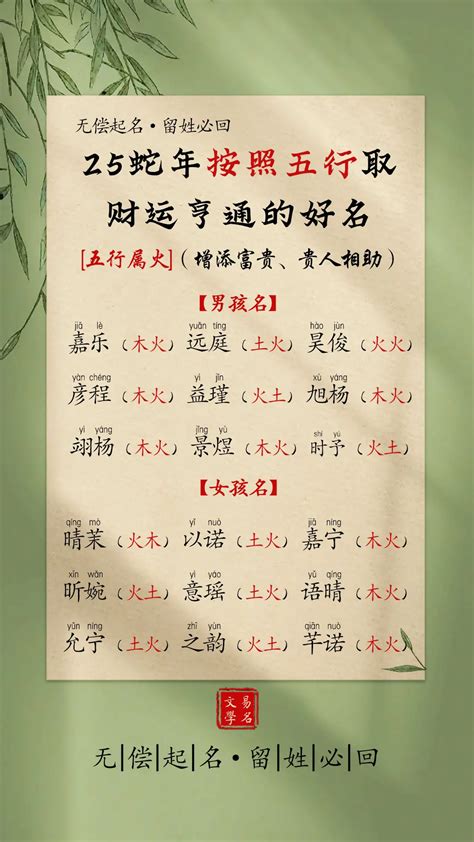 无偿起名·留姓必回
25蛇年按照五行取
财运亨通的好名
[五行属火]（增添富贵、贵人相助）
【男孩名】
jiā lè yuǎn tíng hào jùn
嘉乐（木火） 远庭（土火） 昊俊（火火）
yàn chéng yì jǐn xù yáng
彦程（木火） 益瑾（火土） 旭杨（木火）
yì yáng jǐng yù shí yú
翊杨（木火） 景煜（木火） 时予（火土）
【女孩名】
qíng mò yǐ nuò jiā níng
晴茉（火木） 以诺（土火） 嘉宁（木火）
xīn wǎn yì yáo yǔ qíng
昕婉（火土） 意瑶（火土） 语晴（木火）
yǔn níng zhī yùn qiān nuò
允宁（土火） 之韵（火土） 芊诺（木火）
易名文學
无|偿|起|名·留|姓|必|回